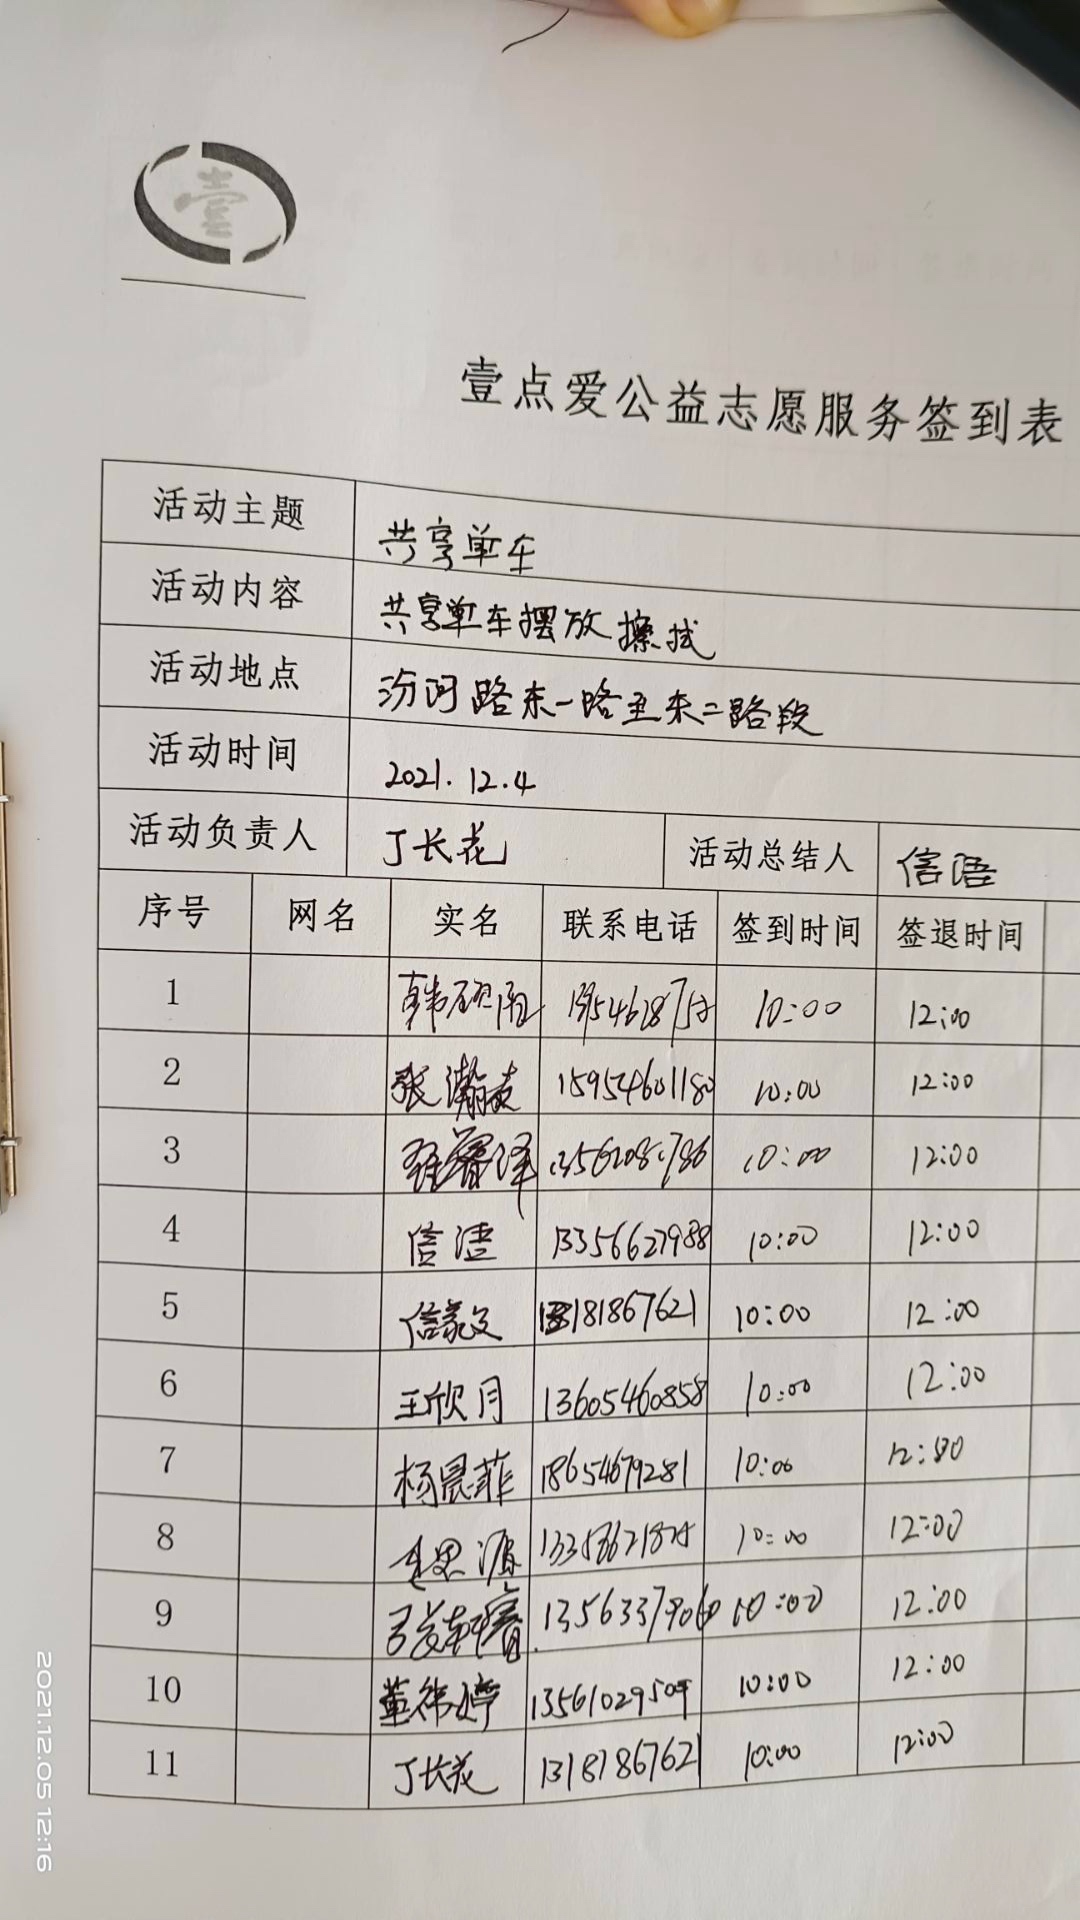 壹
壹点爱公益志愿服务签到表
活动主题 共享单车
活动内容 共享单车摆放擦拭
活动地点 汾河路东一路至东二路段
活动时间 2021.12.4
活动负责人 丁长花 活动总结人 信语
序号 网名 实名 联系电话 签到时间 签退时间
1 10:00 12:00
2 张瀚 15954601180 10:00 12:00
3 10:00 12:00
4 信 13356627988 10:00 12:00
5 信 18181867621 10:00 12:00
6 王欣月 13605460858 10:00 12:00
7 杨晨菲 18654679281 10:00 12:00
8 思源 10:00 12:00
9 10:00 12:00
10 董 10:00 12:00
11 丁长花 13181867621 10:00 12:00
2021.12.05 12:16